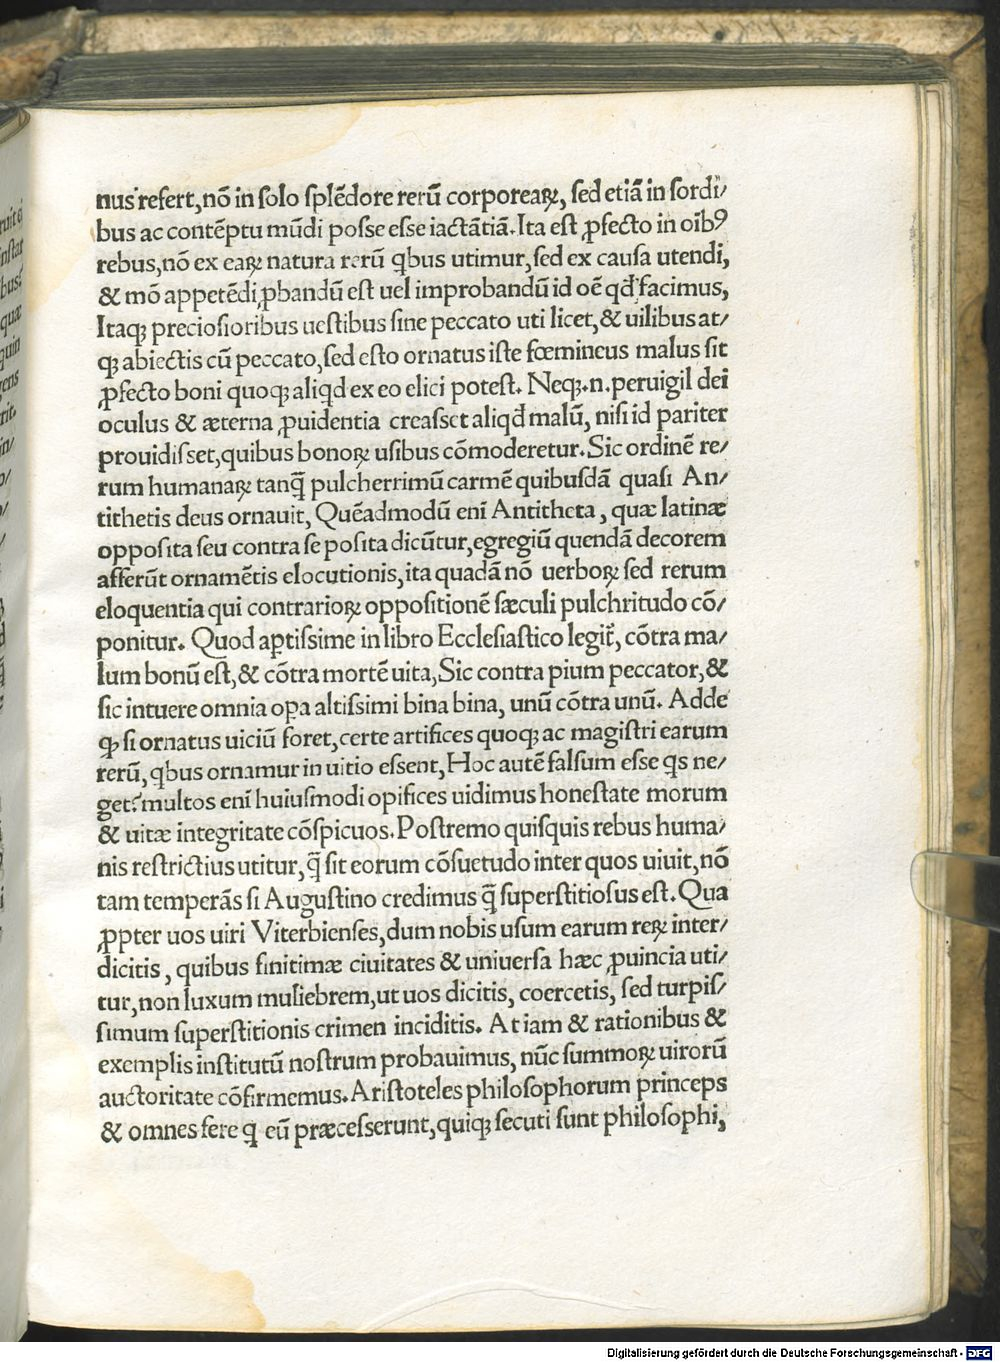 nus refert,nō in ſolo ſplēdore rerū corporeaꝝ, ſed etiā in ſordi/
bus ac contēptu mūdi poſſe eſſe iactātiā. Ita eſt ꝓfecto in oībꝰ
rebus,nō ex eaꝝ natura rerū qbus utimur,ſed ex cauſa utendi,
& mō appetēdi ꝓbandū eſt uel improbandū id oē qd̄ facimus,
Itaqꝫ precioſioribus ueſtibus ſine peccato uti licet,& uilibus at/
qꝫ abiectis cū peccato,ſed eſto ornatus iſte fœmineus malus ſit
ꝓfecto boni quoqꝫ aliqd ex eo elici poteſt. Neqꝫ.n.peruigil dei
oculus & æterna ꝓuidentia creaſſet aliqd malū, niſi id pariter
prouidiſſet,quibus bonoꝝ uſibus cōmoderetur. Sic ordinē re/
rum humanaꝝ tanq̄ pulcherrimū carmē quibuſdā quaſi An/
tithetis deus ornauit, Quēadmodū enī Antitheta, quæ latinæ
oppoſita ſeu contra ſe poſita dicūtur,egregiū quendā decorem
afferūt ornamētis elocutionis,ita quadā nō uerboꝝ ſed rerum
eloquentia qui contrarioꝝ oppoſitionē ſæculi pulchritudo cō/
ponitur. Quod aptiſſime in libro Eccleſiaſtico legit̄, cōtra ma/
lum bonū eſt,& cōtra mortē uita,Sic contra pium peccator,&
ſic intuere omnia opa altiſſimi bina bina, unū cōtra unū. Adde
qꝫ ſi ornatus uiciū foret,certe artifices quoqꝫ ac magiſtri earum
rerū,qbus ornamur in uitio eſſent,Hoc autē falſum eſſe qs ne/
get?multos enī huiuſmodi opifices uidimus honeſtate morum
& uitæ integritate cōſpicuos.Poſtremo quiſquis rebus huma/
nis reſtrictius utitur,q̄ ſit eorum cōſuetudo inter quos uiuit,nō
tam temperās ſi Auguſtino credimus q̄ ſuperſtitioſus eſt. Qua
ꝓpter uos uiri Viterbienſes,dum nobis uſum earum reꝝ inter/
dicitis, quibus finitimæ ciuitates & uniuerſa hæc ꝓuincia uti/
tur,non luxum muliebrem,ut uos dicitis, coercetis, ſed turpiſ/
ſimum ſuperſtitionis crimen inciditis. At iam & rationibus &
exemplis inſtitutū noſtrum probauimus, nūc ſummoꝝ uirorū
auctoritate cōfirmemus.Ariſtoteles philoſophorum princeps
& omnes fere q eū præceſſerunt,quiqꝫ ſecuti ſunt philoſophi,
Digitalisierung gefördert durch die Deutsche Forschungsgemeinschaft - DFG